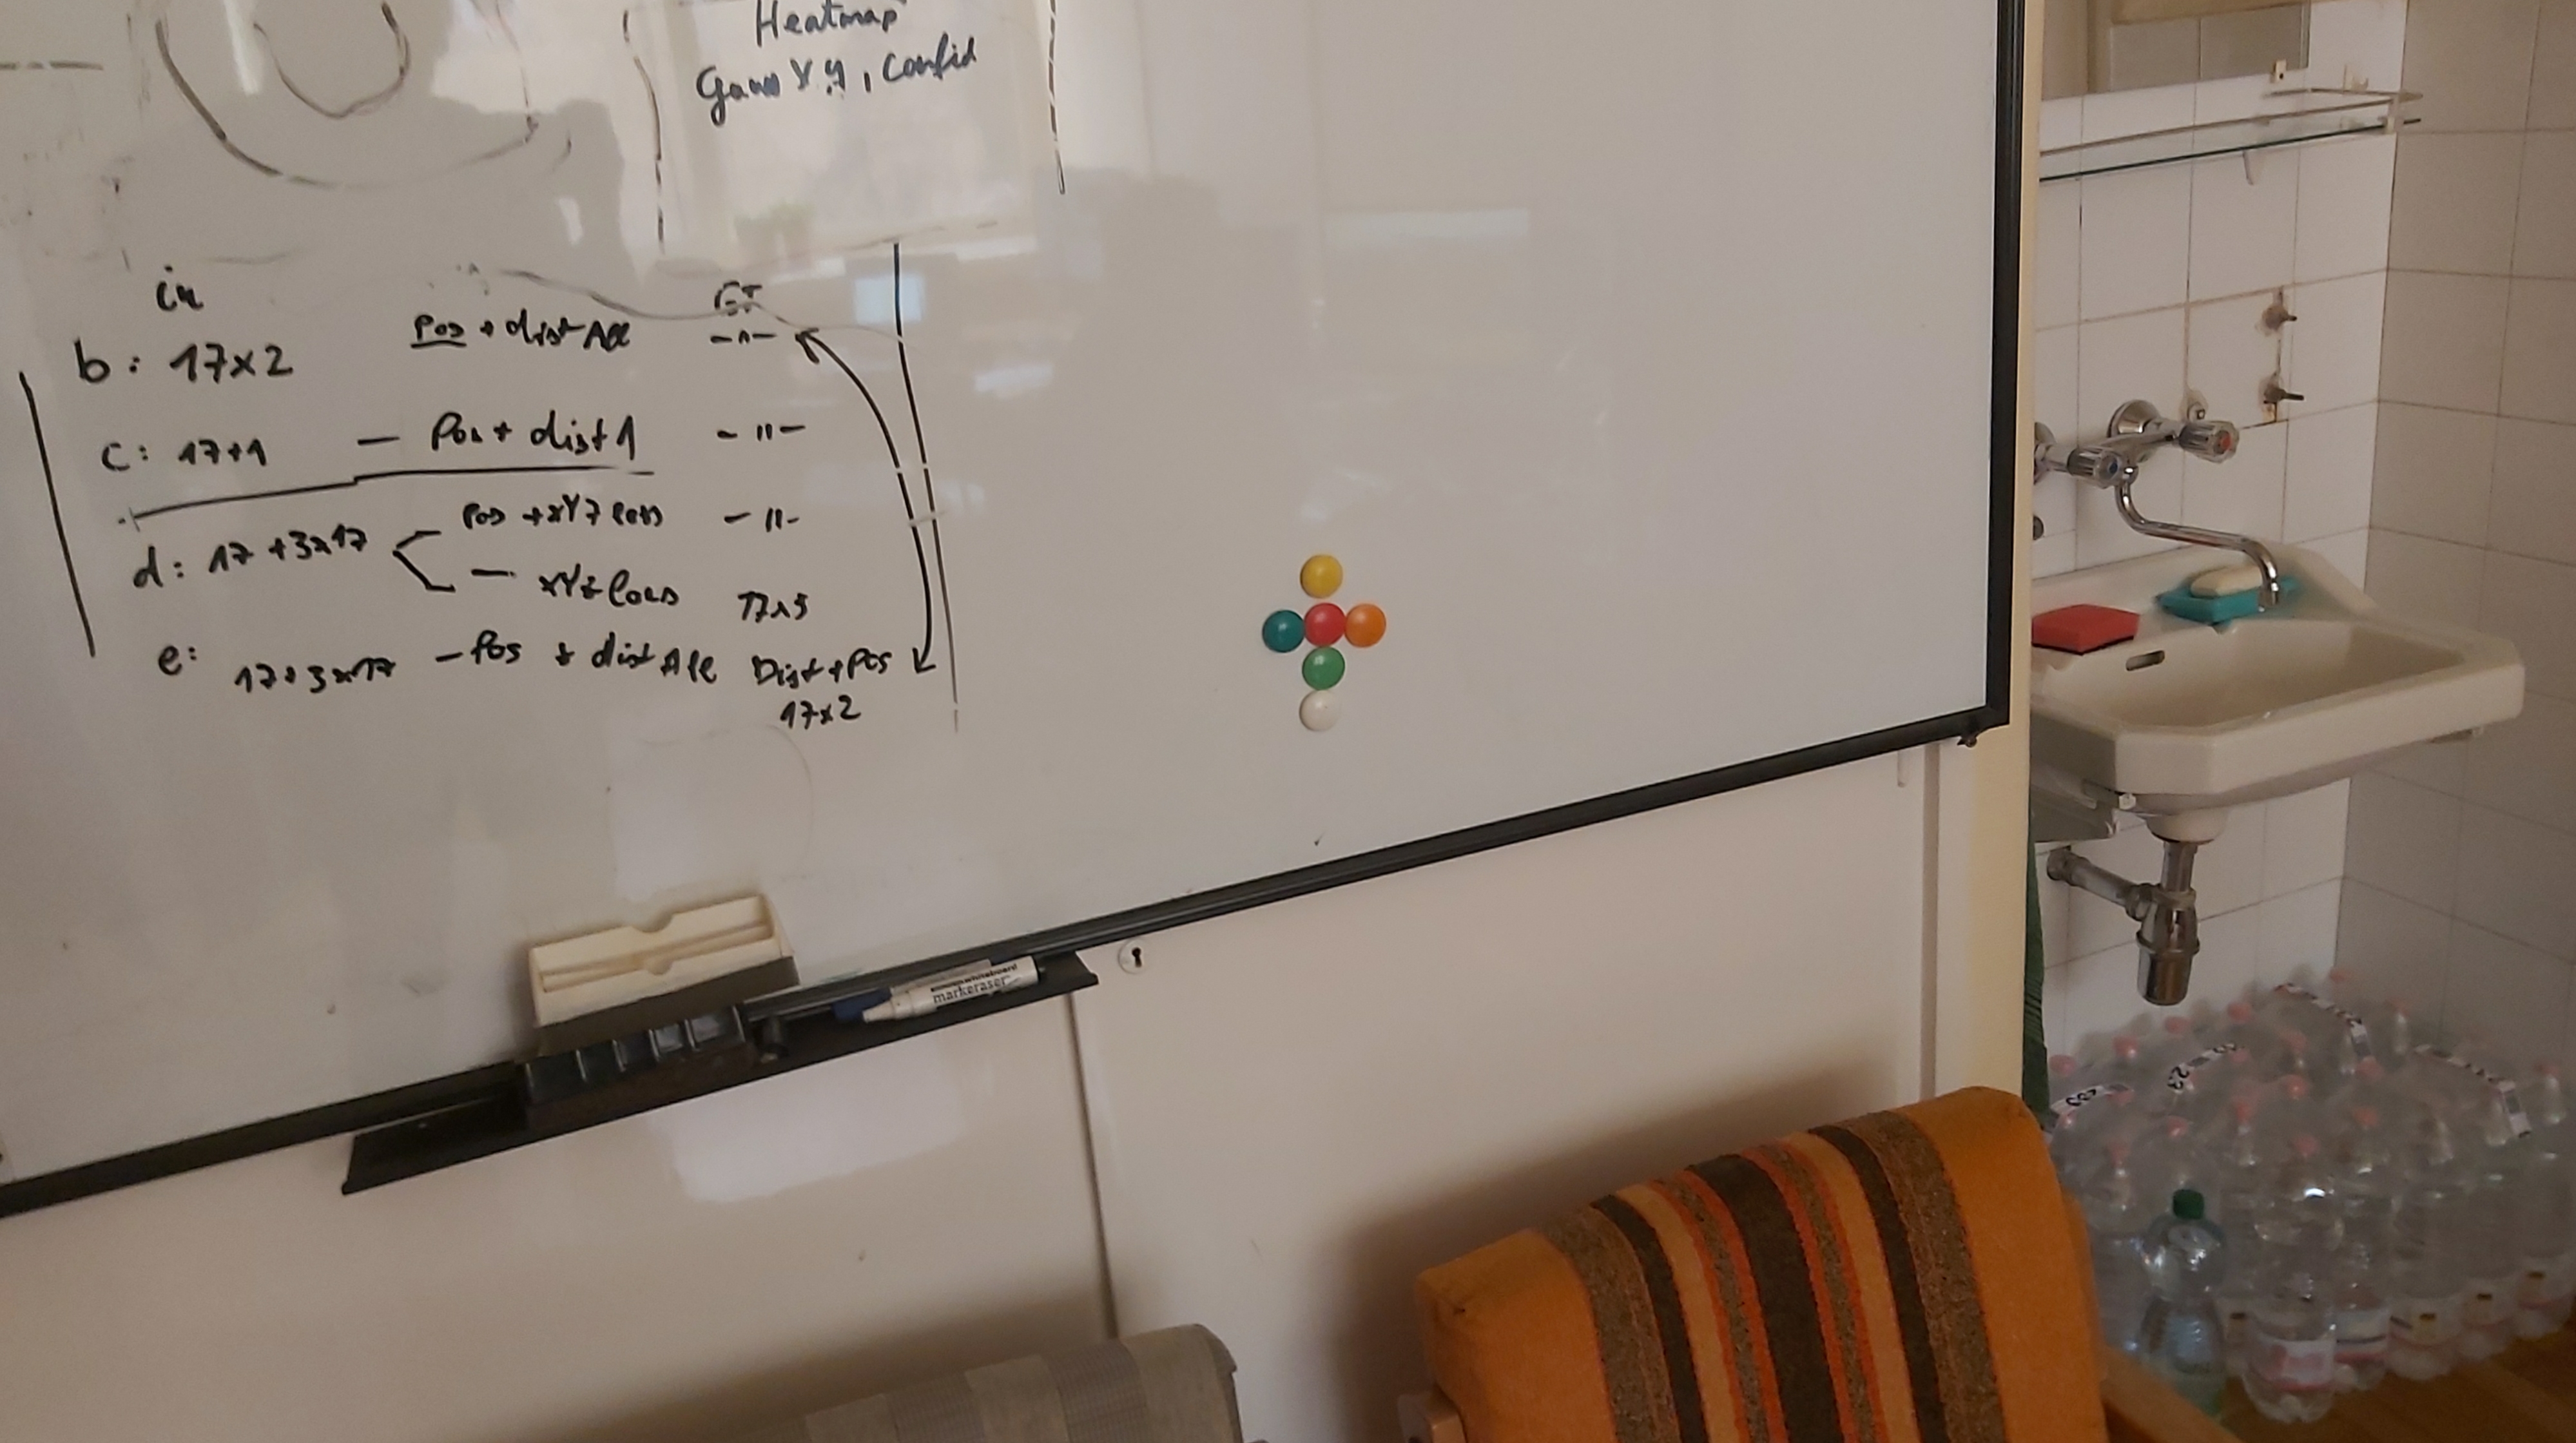 Heatmap
Gauss X, Y, Confid
in GT
b: 17x2 Pos + dist All -"-
c: 17+1 - Pos + dist 1 -"-
d: 17+3x17 Pos + XYZ -"-
- XYZ 17x5
e: 17+3x17 - Pos + dist All Dist + Pos
17x2
whiteboard
markeraser